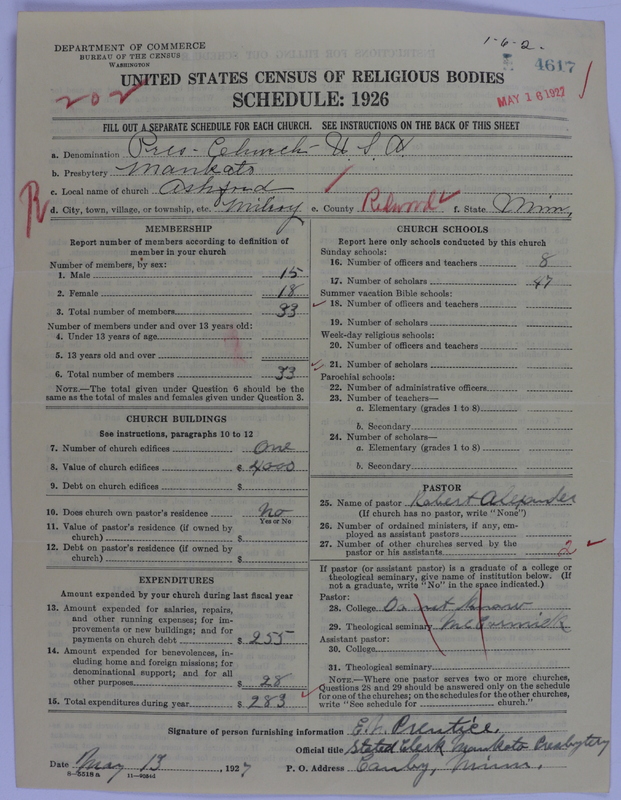 DEPARTMENT OF COMMERCE
BUREAU OF THE CENSUS
WASHINGTON
1-6-2.
4617
UNITED STATES CENSUS OF RELIGIOUS BODIES
202
SCHEDULE: 1926
MAY 16 1927
FILL OUT A SEPARATE SCHEDULE FOR EACH CHURCH. SEE INSTRUCTIONS ON THE BACK OF THIS SHEET
a. Denomination Pres- Church- U.S.A.
b. Presbytery Mankato
c. Local name of church Ashford
R
d. City, town, village, or township, etc. Milroy e. County Redwood f. State Minn.
MEMBERSHIP
Report number of members according to definition of member in your church
Number of members, by sex:
1. Male 15
2. Female 18
3. Total number of members 33
Number of members under and over 13 years old:
4. Under 13 years of age
5. 13 years old and over
6. Total number of members 33
NOTE.—The total given under Question 6 should be the
same as the total of males and females given under Question 3.
CHURCH BUILDINGS
See instructions, paragraphs 10 to 12
7. Number of church edifices One
8. Value of church edifices $ 4000
9. Debt on church edifices $
10. Does church own pastor's residence No
Yes or No
11. Value of pastor's residence (if owned by
church) $
12. Debt on pastor's residence (if owned by
church) $
EXPENDITURES
Amount expended by your church during last fiscal year
13. Amount expended for salaries, repairs,
and other running expenses; for im-
provements or new buildings; and for
payments on church debt $ 255
14. Amount expended for benevolences, in-
cluding home and foreign missions; for
denominational support; and for all
other purposes $ 28
15. Total expenditures during year $ 283
CHURCH SCHOOLS
Report here only schools conducted by this church
Sunday schools:
16. Number of officers and teachers 8
17. Number of scholars 47
Summer vacation Bible schools:
18. Number of officers and teachers
19. Number of scholars
Week-day religious schools:
20. Number of officers and teachers
21. Number of scholars
Parochial schools:
22. Number of administrative officers
23. Number of teachers—
a. Elementary (grades 1 to 8)
b. Secondary
24. Number of scholars—
a. Elementary (grades 1 to 8)
b. Secondary
PASTOR
25. Name of pastor Robert Alexander
(If church has no pastor, write "None")
26. Number of ordained ministers, if any, em-
ployed as assistant pastors
27. Number of other churches served by the
pastor or his assistants 2
If pastor (or assistant pastor) is a graduate of a college or
theological seminary, give name of institution below. (If
not a graduate, write "No" in the space indicated.)
Pastor:
28. College Do not know
29. Theological seminary McCormick
Assistant pastor:
30. College
31. Theological seminary
NOTE.—Where one pastor serves two or more churches,
Questions 28 and 29 should be answered only on the schedule
for one of the churches; on the schedules for the other churches,
write "See schedule for church."
Signature of person furnishing information E.V. Prentice,
Official title Stated Clerk Mankato Presbytery
Date May 13, 1927 P. O. Address Canby, Minn.
8—5518 a 11—9584d